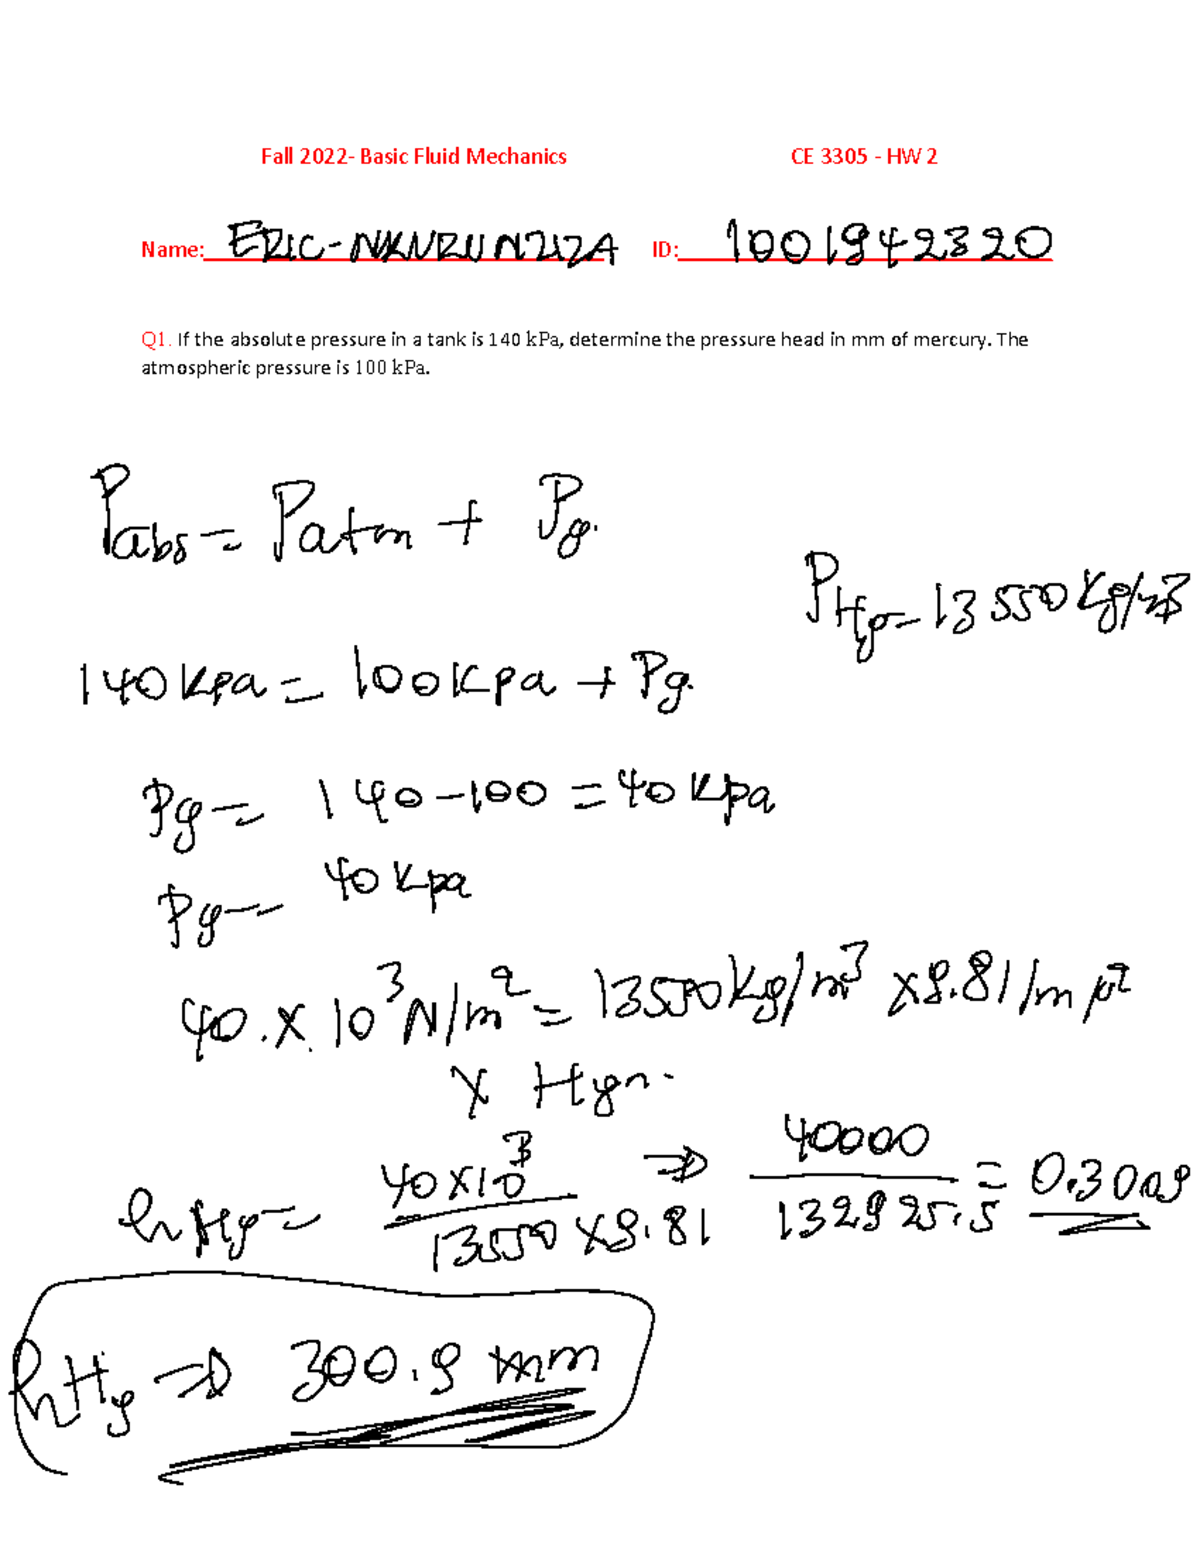 Fall 2022- Basic Fluid Mechanics CE 3305 - HW 2
Name: ERIC-NKNRUNZIZA ID: 1001942320
Q1. If the absolute pressure in a tank is 140 kPa, determine the pressure head in mm of mercury. The
atmospheric pressure is 100 kPa.
Pabs = Patm + Pg.
PHg = 13550 Kg/m3
140 kpa = 100 Kpa + Pg.
Pg = 140 - 100 = 40 Kpa
Pg = 40 Kpa
40. x 10^3 N/m^2 = 13550 Kg/m^3 x 9.81/m
x Hgn.
hHg = 40x10^3 / 13550 x 9.81 ⇒ 40000 / 132925.5 = 0.3009
hHg ⇒ 300.9 mm